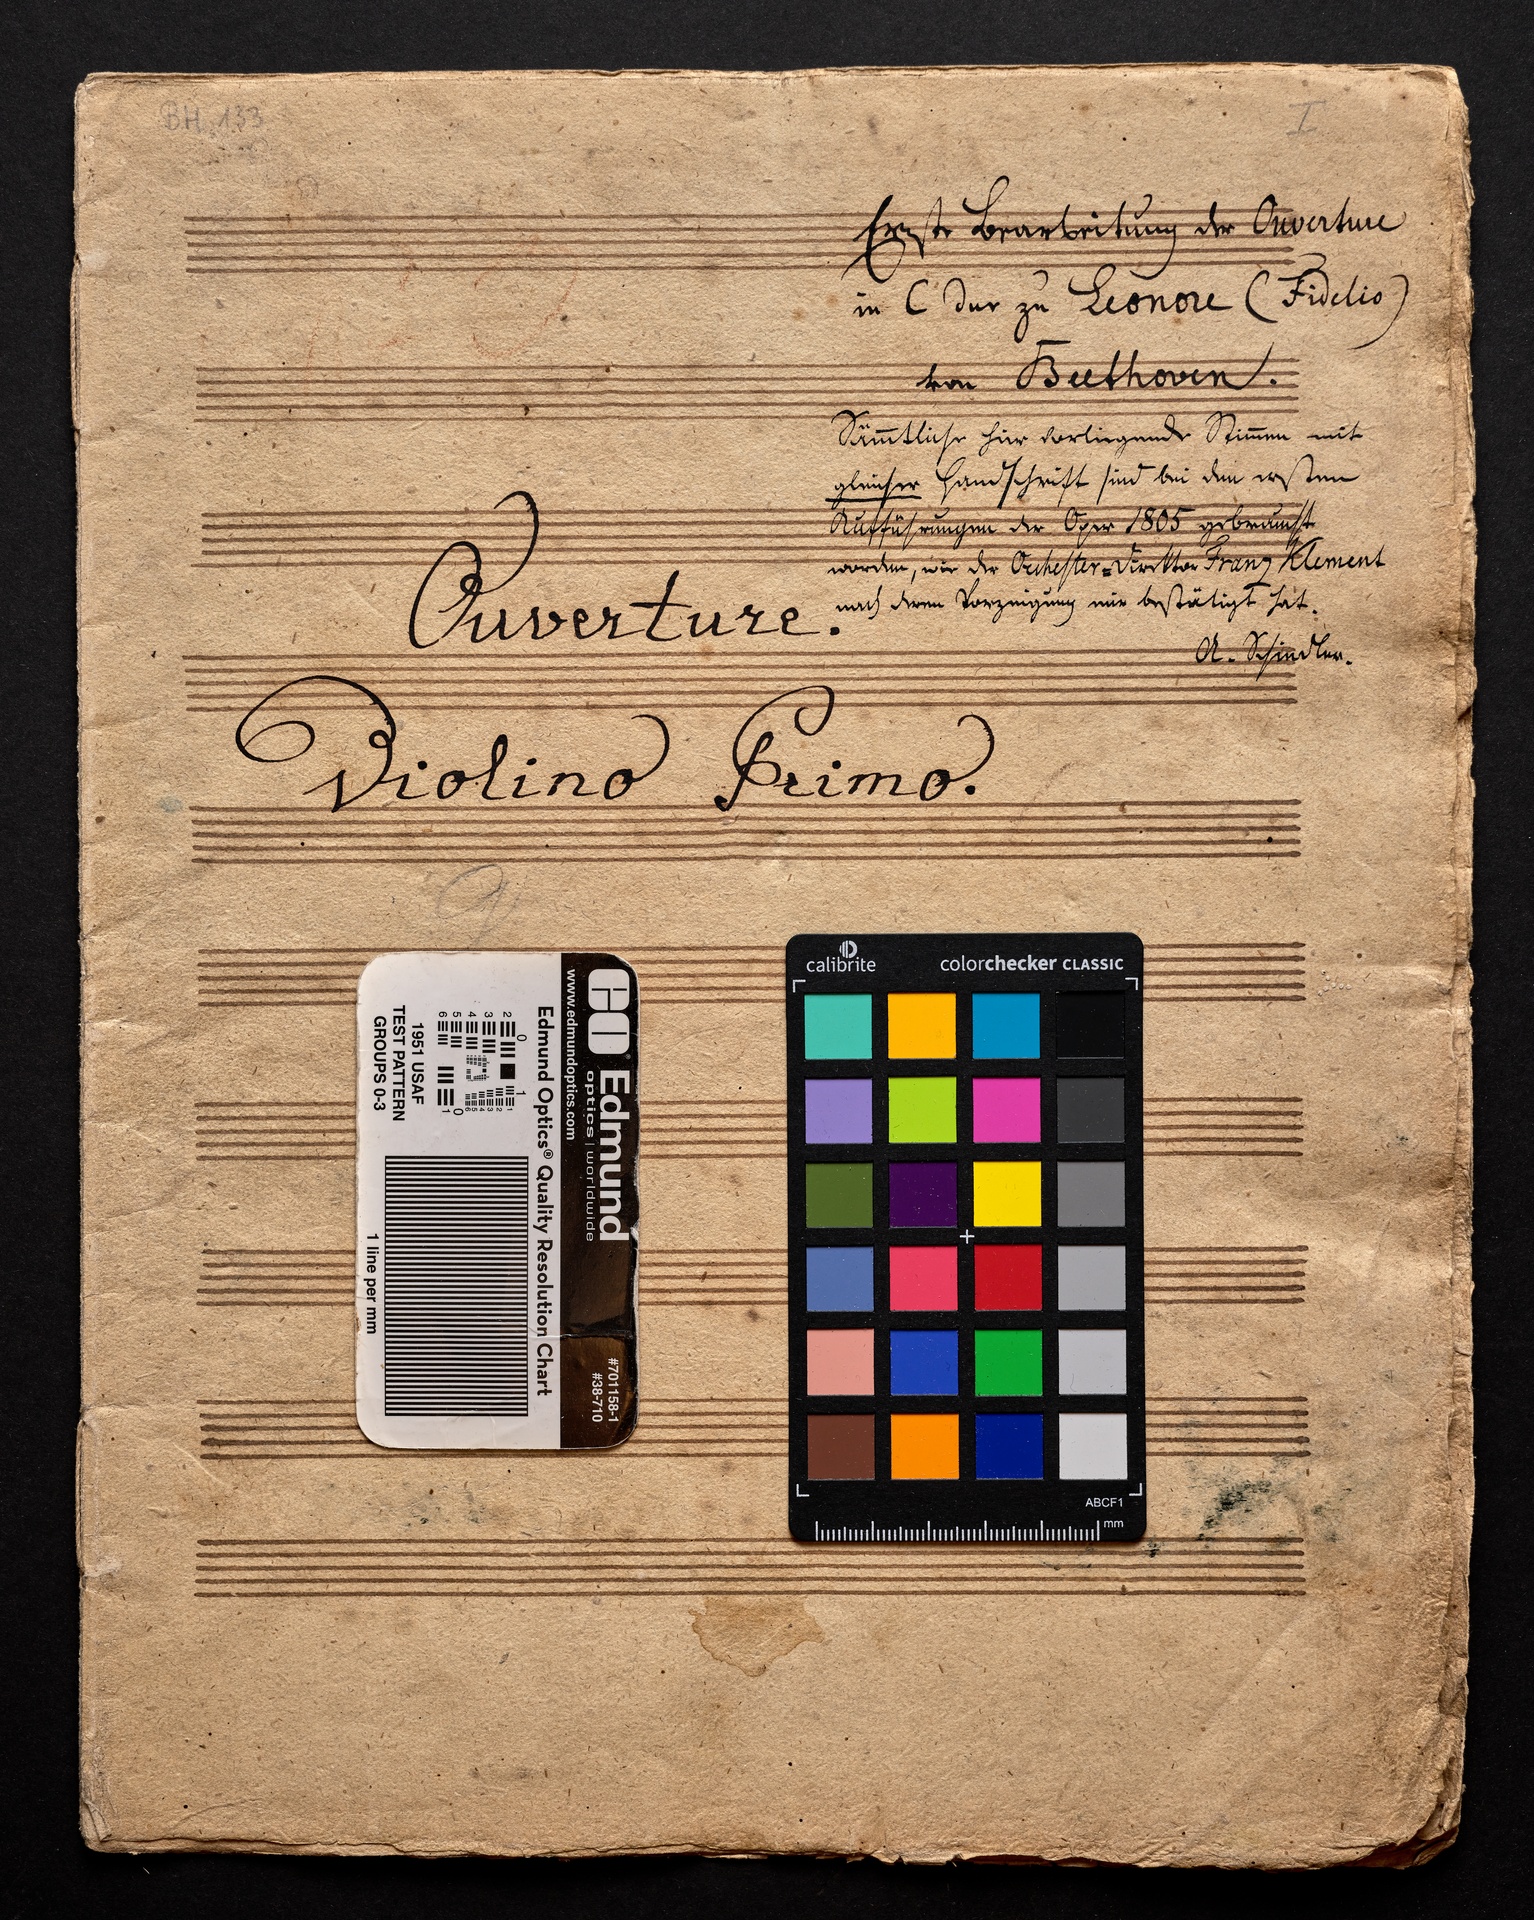 BH 133
I
Erste Bearbeitung der Ouverture
in C dur zu Leonore (Fidelio)
von Beethoven.
Sämmtliche hier vorliegende Stimmen mit
gleicher Handschrift sind bei den ersten
Aufführungen der Oper 1805 gebraucht
worden, wie der Orchester-Direktor Franz Klement
nach deren Vorzeigung mir bestätigt hat.
A. Schindler.
Ouverture.
Violino Primo.
Edmund
optics | worldwide
www.edmundoptics.com
#701158-1
#38-710
Edmund Optics® Quality Resolution Chart
1951 USAF
TEST PATTERN
GROUPS 0-3
1 line per mm
calibrite
colorchecker CLASSIC
ABCF1
mm